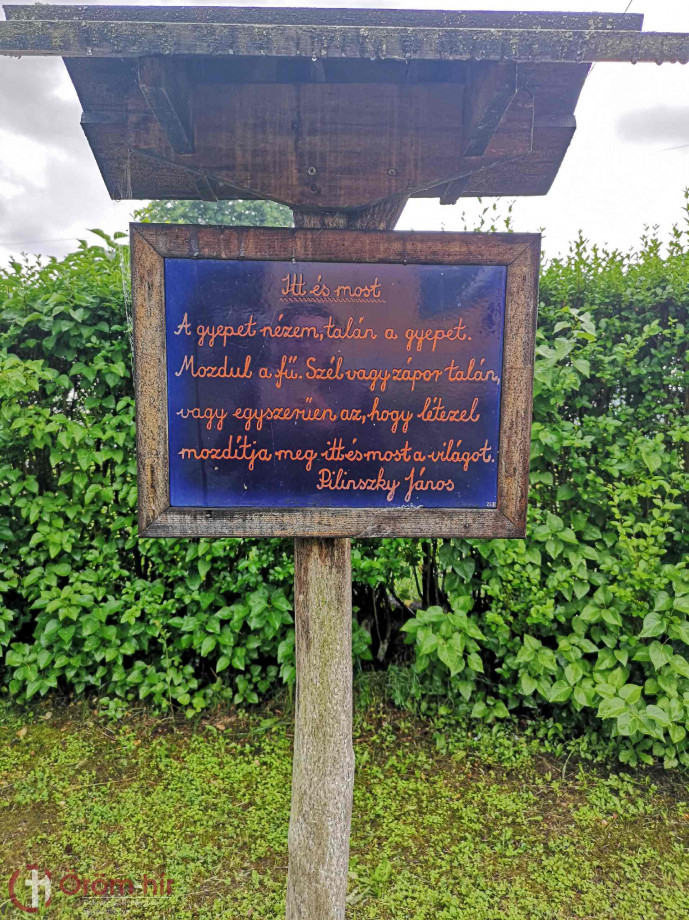 Itt és most
A gyepet nézem, talán a gyepet.
Mozdul a fű. Szél vagy zápor talán,
vagy egyszerűen az, hogy létezel
mozdítja meg itt és most a világot.
Pilinszky János
Öröm.hír